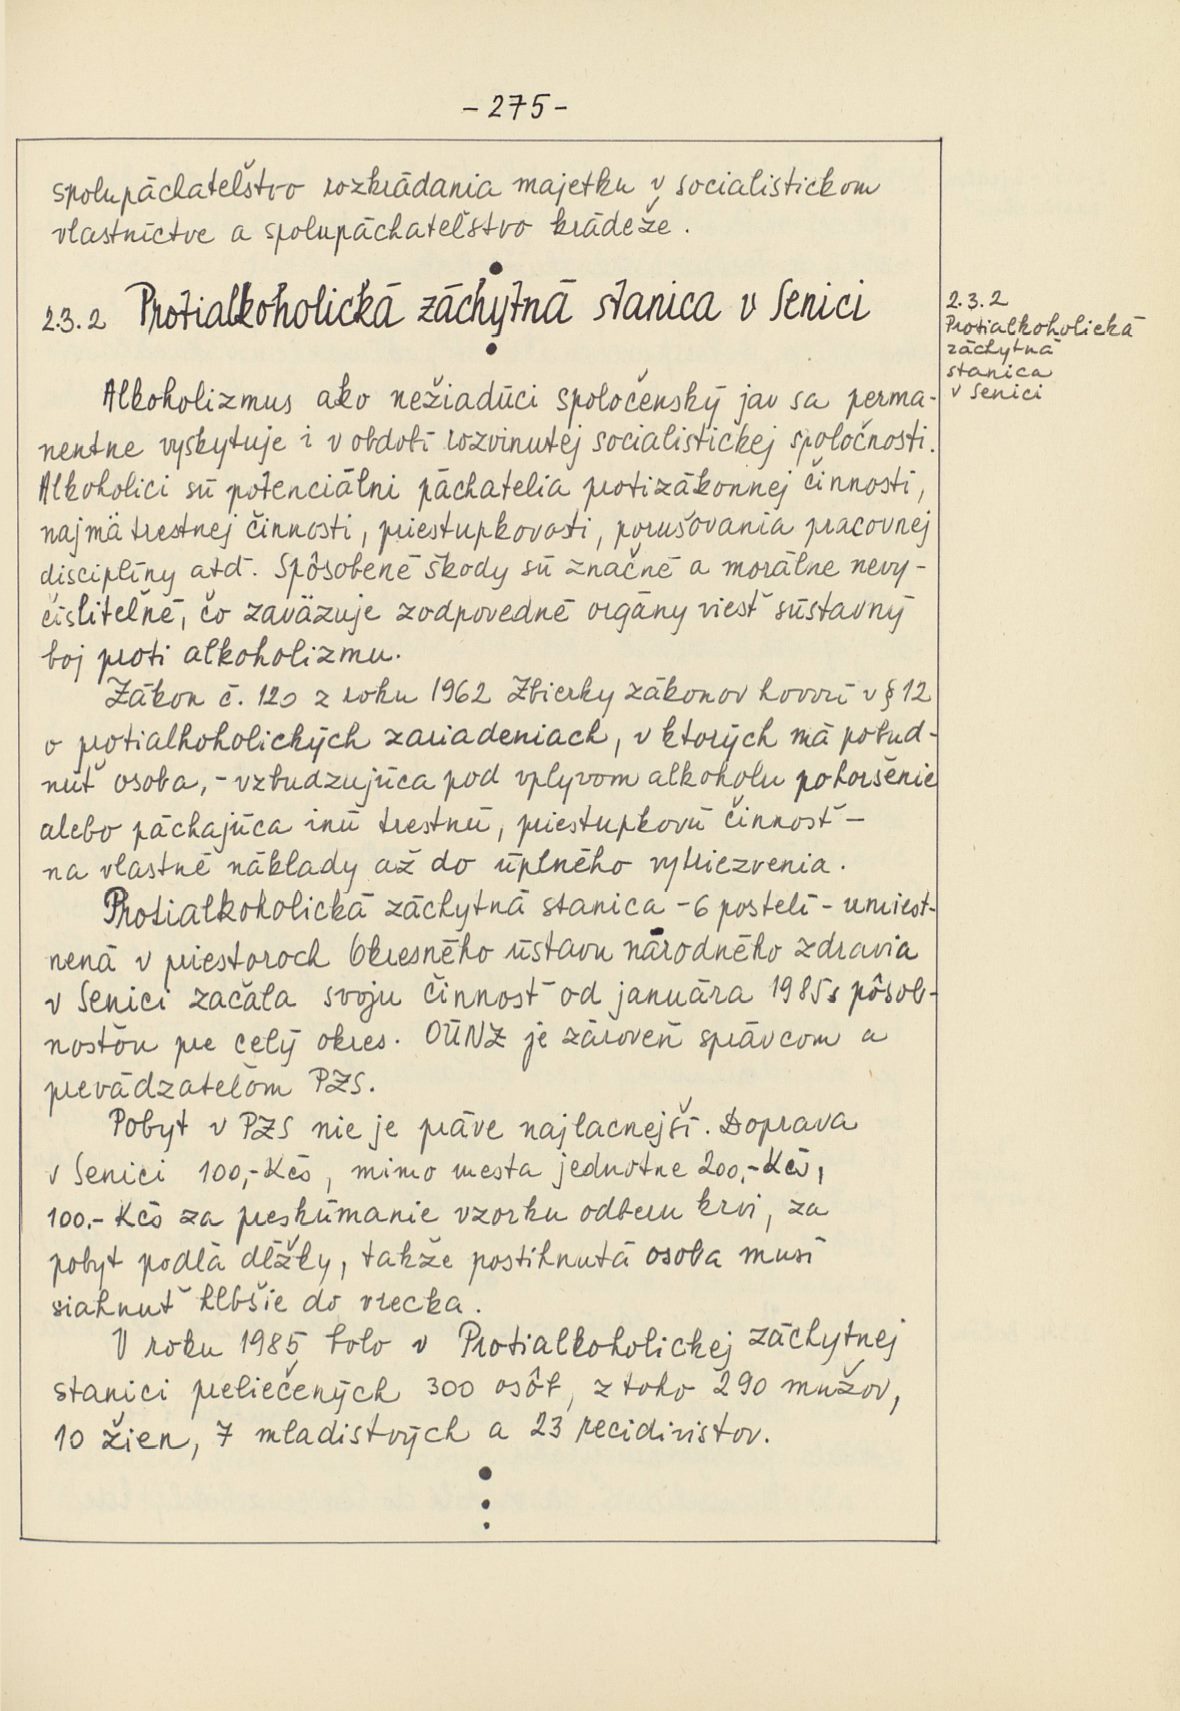 - 275 -
spolupáchateľstvo rozkrádania majetku v socialistickom
vlastníctve a spolupáchateľstvo krádeže.
2.3.2 Protialkoholická záchytná stanica v Senici
2.3.2
Protialkoholická
záchytná
stanica
v Senici
Alkoholizmus ako nežiadúci spoločenský jav sa perma-
nentne vyskytuje i v období rozvinutej socialistickej spoločnosti.
Alkoholici sú potenciálni páchatelia protizákonnej činnosti,
najmä trestnej činnosti, priestupkovosti, porušovania pracovnej
disciplíny atď. Spôsobené škody sú značné a morálne nevy-
čísliteľné, čo zaväzuje zodpovedné orgány viesť sústavný
boj proti alkoholizmu.
Zákon č. 120 z roku 1962 Zbierky zákonov hovorí v § 12
o protialhoholických zariadeniach, v ktorých má pobud-
núť osoba, - vzbudzujúca pod vplyvom alkoholu pohoršenie
alebo páchajúca inú trestnú, priestupkovú činnosť -
na vlastné náklady až do úplného vytriezvenia.
Protialkoholická záchytná stanica - 6 postelí - umiest-
nená v priestoroch Okresného ústavu národného zdravia
v Senici začala svoju činnosť od januára 1985 s pôsob-
nosťou pre celý okres. OÚNZ je zároveň správcom a
prevádzateľom PZS.
Pobyt v PZS nie je práve najlacnejší. Doprava
v Senici 100,- Kčs, mimo mesta jednotne 200,- Kčs,
100.- Kčs za preskúmanie vzorku odberu krvi, za
pobyt podľa dĺžky, takže postihnutá osoba musí
siahnuť hlbšie do vrecka.
V roku 1985 bolo v Protialkoholickej záchytnej
stanici preliečených 300 osôb, z toho 290 mužov,
10 žien, 7 mladistvých a 23 recidivistov.